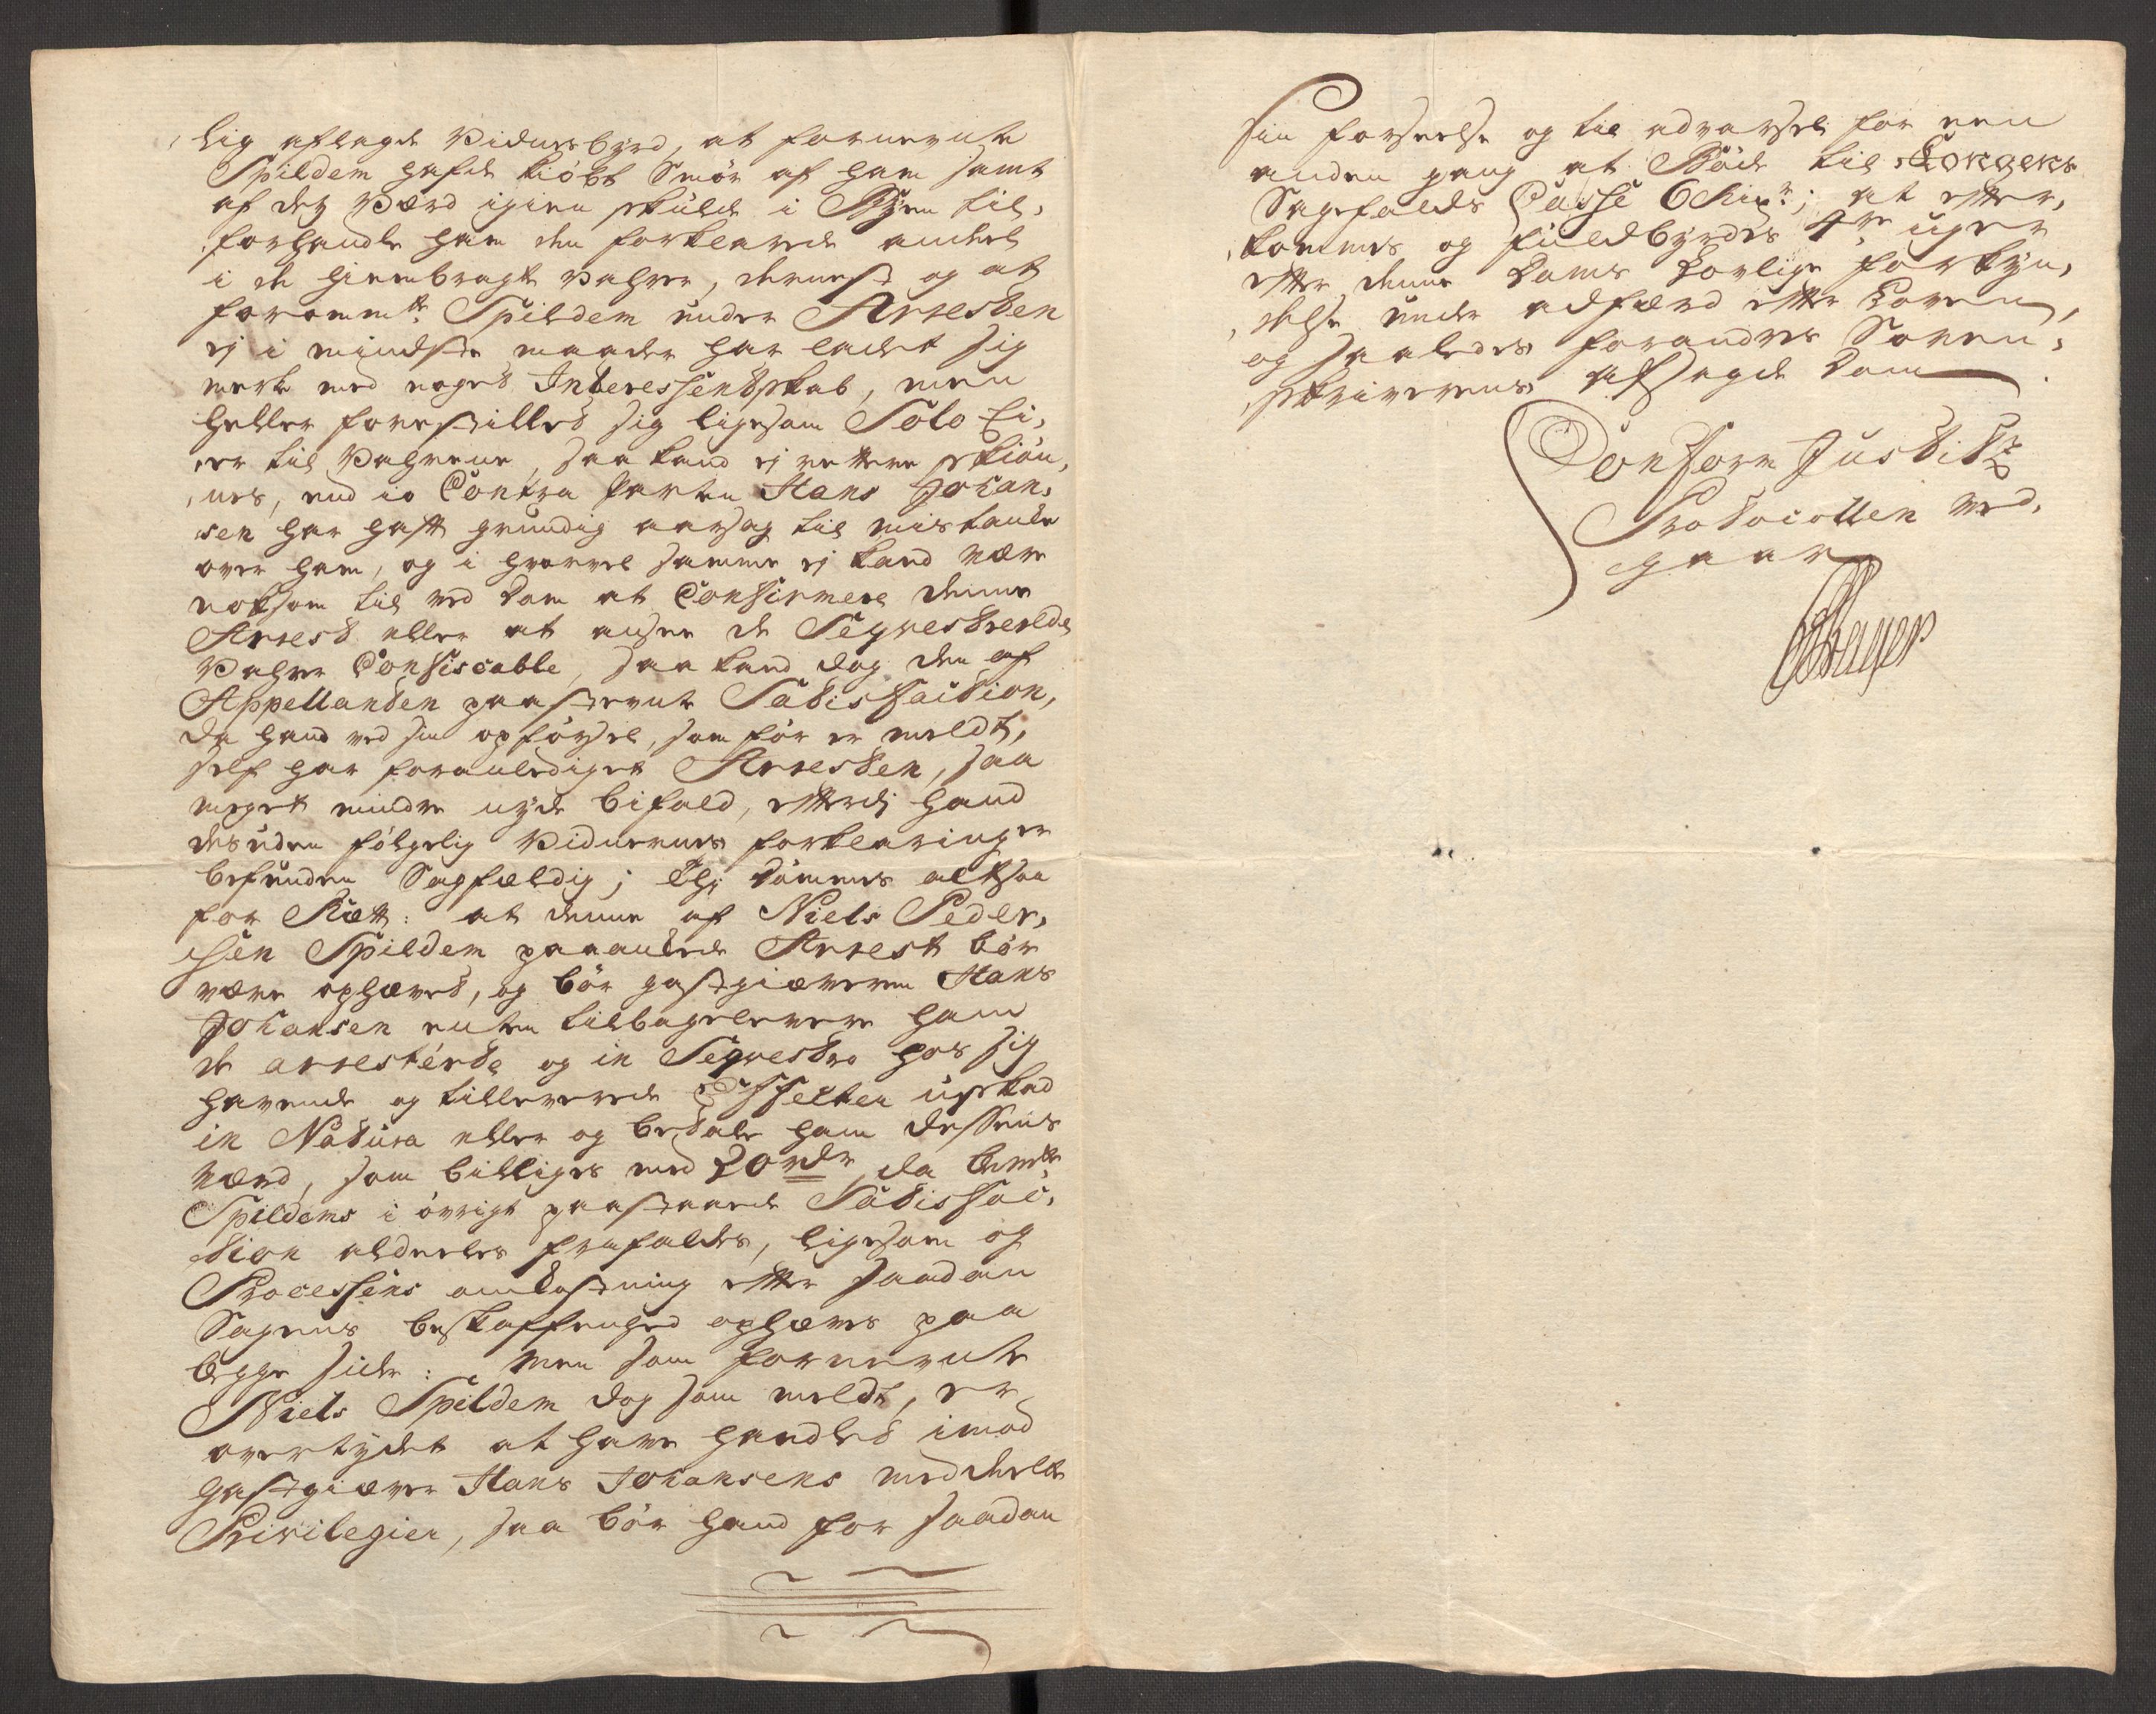 lig aflagde Vidnesbÿrd, at fornevnte
Spildem hafde kiöbt Smör af ham samt
af deß Værd igien skulde i Bÿen til,
forhandle ham den forklarede andeel
i de hjembragte Vahrer, dernest og at
forommte Spildem under Arresten
ej i mindste maader har ladet sig
merke med noged Interessentskab, men
heller forestilled sig ligesom Solo Ei,
er til Vahrene, saa kand ej rettere skiön,
nes, end io Contra Parten Hans Johan,
sen har haft grundig aarsag til mistanke
over ham, og i hvorvel samme ej kand være
noksom til ved Dom at Confirmere denne
Arrest eller at ansee de Seqvestrerede
Vahrer Confiscable, saa kand dog den af
Appellanten paastevnte Satisfaction,
da hand ved sin opförsel, som för er meldt,
self har foranlediget Arresten, saa
meget mindre nÿde bifald, efterdj hand
desuden fölgelig Vidnernes forklaringer
befunden Sagfeldig; Thj dömmes altsaa
for Rætt: at denne af Niels Peder,
sen Spildem paaankede Arrest bör
være ophæved, og bör gastgiæveren Hans
Johansen enten tilbagelevere ham
de arresterde og in Seqvestro hos sig
havende og tilleverede Effecter uskad
in Natura eller og betale ham dessens
Værd, som billiges med 20 rdr, da bemte
Spildems i övrigt paastaaede Satisfac,
tion alderles frafaldes, ligesom og
Processens omkostning efter saadan
Sagens beskaffenhed ophæves paa
begge sider: Men som fornevnte
Niels Spildem dog som meldt, er
overtÿdet at have handled imod
gastgiæver Hans Johansens meddeelte
Privilegier, saa bör hand for saadan
sin forseelse og til advarsel for een
anden gang at Böde til Kongens
Sagefalds Casse 6 Rixdr; at efter,
kommes og fuldbÿrdes 4re uger
efter denne Doms Lovlige forkÿn,
delse under adfærd efter Loven,
og saaledes forandres Soren,
skriverens afsagde Dom
Conform Justits
Protocollen ved,
gaar